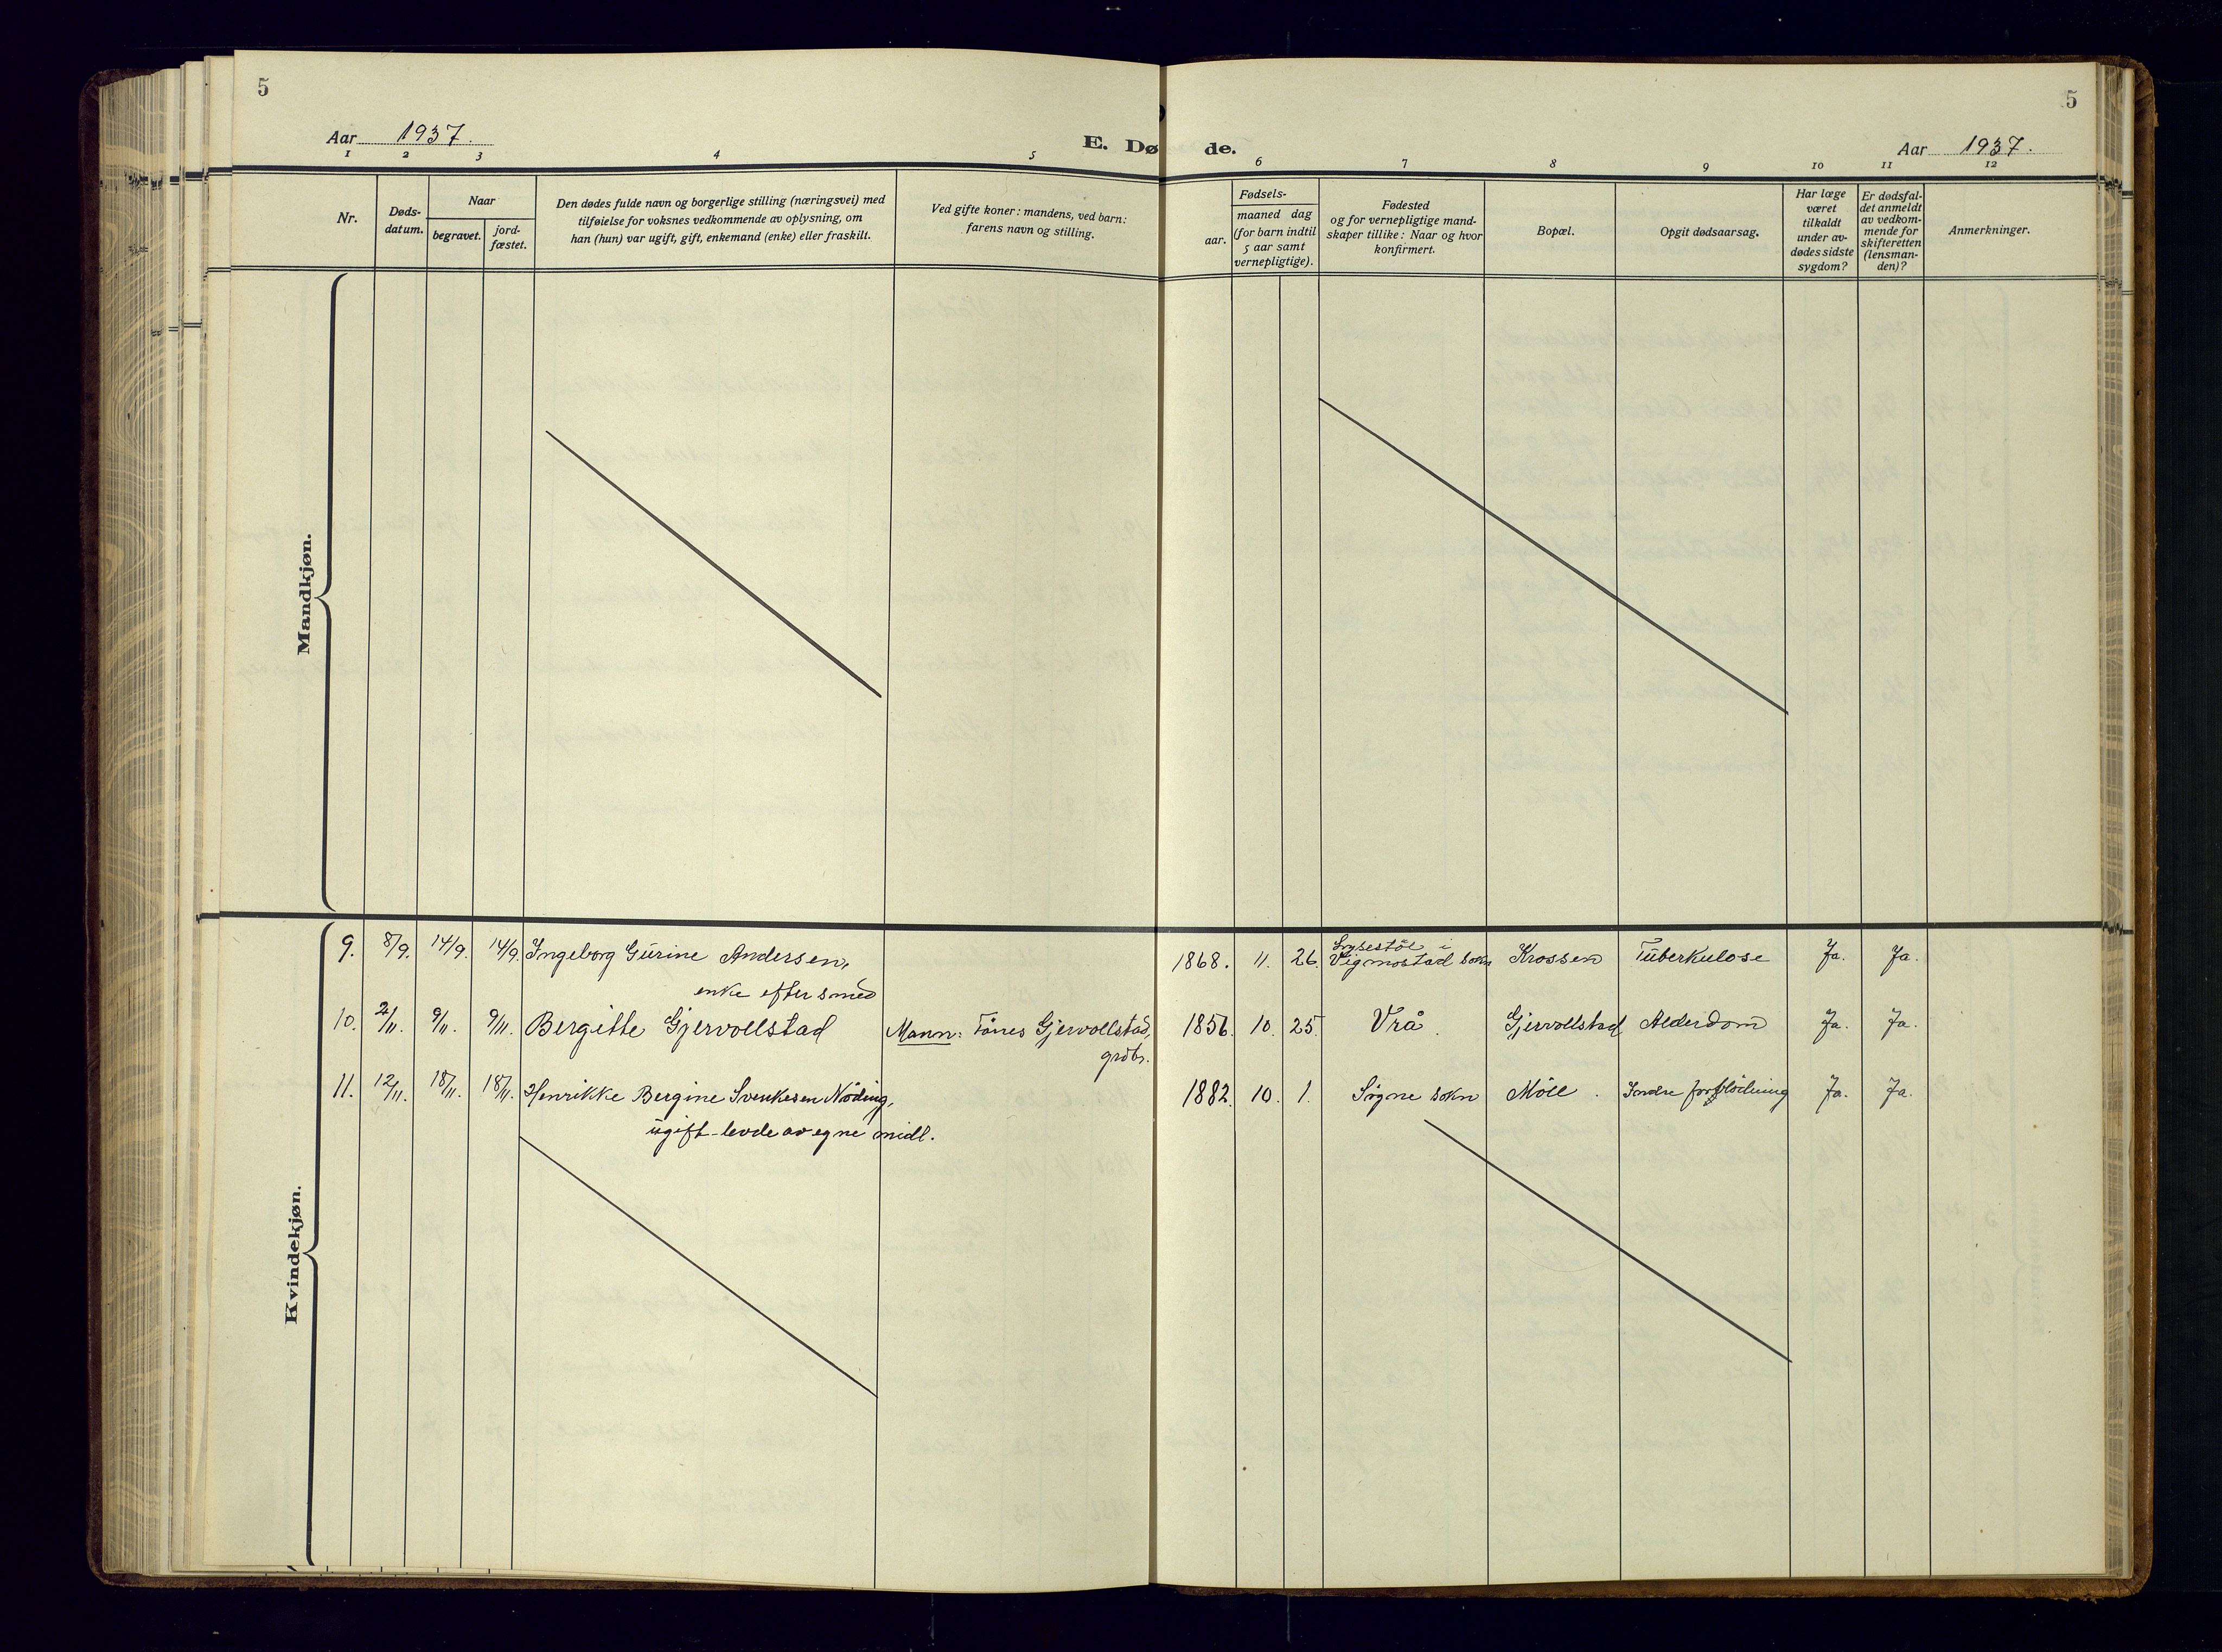 5
5
Aar 1937.
E. Dø de.
Aar 1937.
1 2 3 4 5 6 7 8 9 10 11 12
Nr.
Døds-
datum.
Naar
begravet.
jord-
fæstet.
Den dødes fulde navn og borgerlige stilling (næringsvei) med
tilføielse for voksnes vedkommende av oplysning, om
han (hun) var ugift, gift, enkemand (enke) eller fraskilt.
Ved gifte koner: mandens, ved barn:
farens navn og stilling.
Fødsels-
aar.
maaned dag
(for barn indtil
5 aar samt
vernepligtige).
Fødested
og for vernepligtige mand-
skaper tillike: Naar og hvor
konfirmert.
Bopæl.
Opgit dødsaarsag.
Har læge
været
tilkaldt
under av-
dødes sidste
sygdom?
Er dødsfal-
det anmeldt
av vedkom-
mende for
skifteretten
(lensman-
den)?
Anmerkninger.
Mandkjøn.
Kvindekjøn.
9. 8/9. 14/9. 14/9. Ingeborg Gurine Andersen, 1868. 11. 26. i
Vigmostad sokn Krossen Tuberkulose Ja. Ja.
enke efter smed
10. 2/11. 9/11. 9/11. Bergitte Gjervollstad Mann: Tönes Gjervollstad, 1856. 10. 25. Vrå. Gjervollstad Alderdom Ja. Ja.
grdbr.
11. 12/11. 18/11. 18/11. Henrikke Bergine Svenkesen Nöding, 1882. 10. 1. Sögne sokn Möll. Indre forblödning Ja. Ja.
ugift - levde av egne midl.